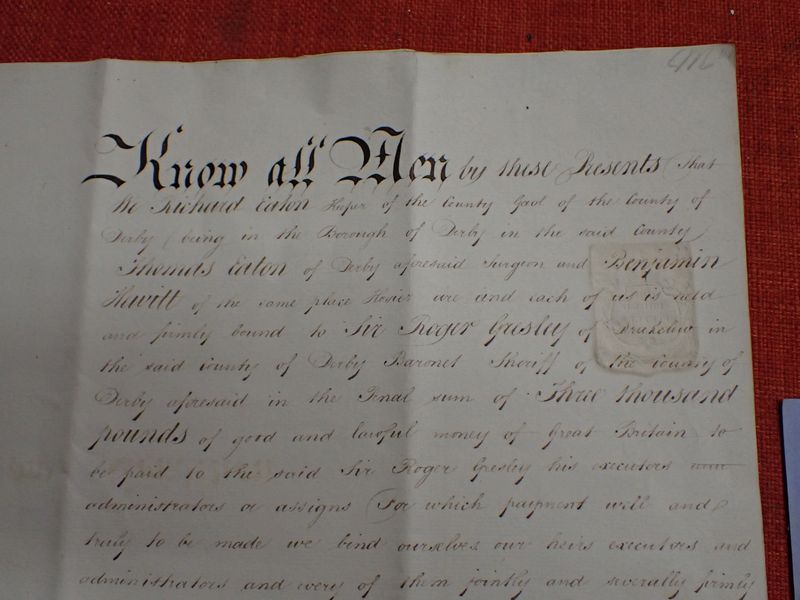 416
Know all Men by these Presents that
We Richard Eaton Keeper of the County Gaol of the County of
Derby (being in the Borough of Derby in the said County
Thomas Eaton of Derby aforesaid Surgeon and Benjamin
Hewitt of the same place Hosier are and each of us is held
and firmly bound to Sir Roger Gresley of Drakelow in
the said county of Derby Baronet Sheriff of the County of
Derby aforesaid in the Penal sum of Three thousand
pounds of good and lawful money of Great Britain to
be paid to the said Sir Roger Gresley his executors
administrators or assigns For which payment well and
truly to be made we bind ourselves our heirs executors and
administrators and every of them jointly and severally firmly